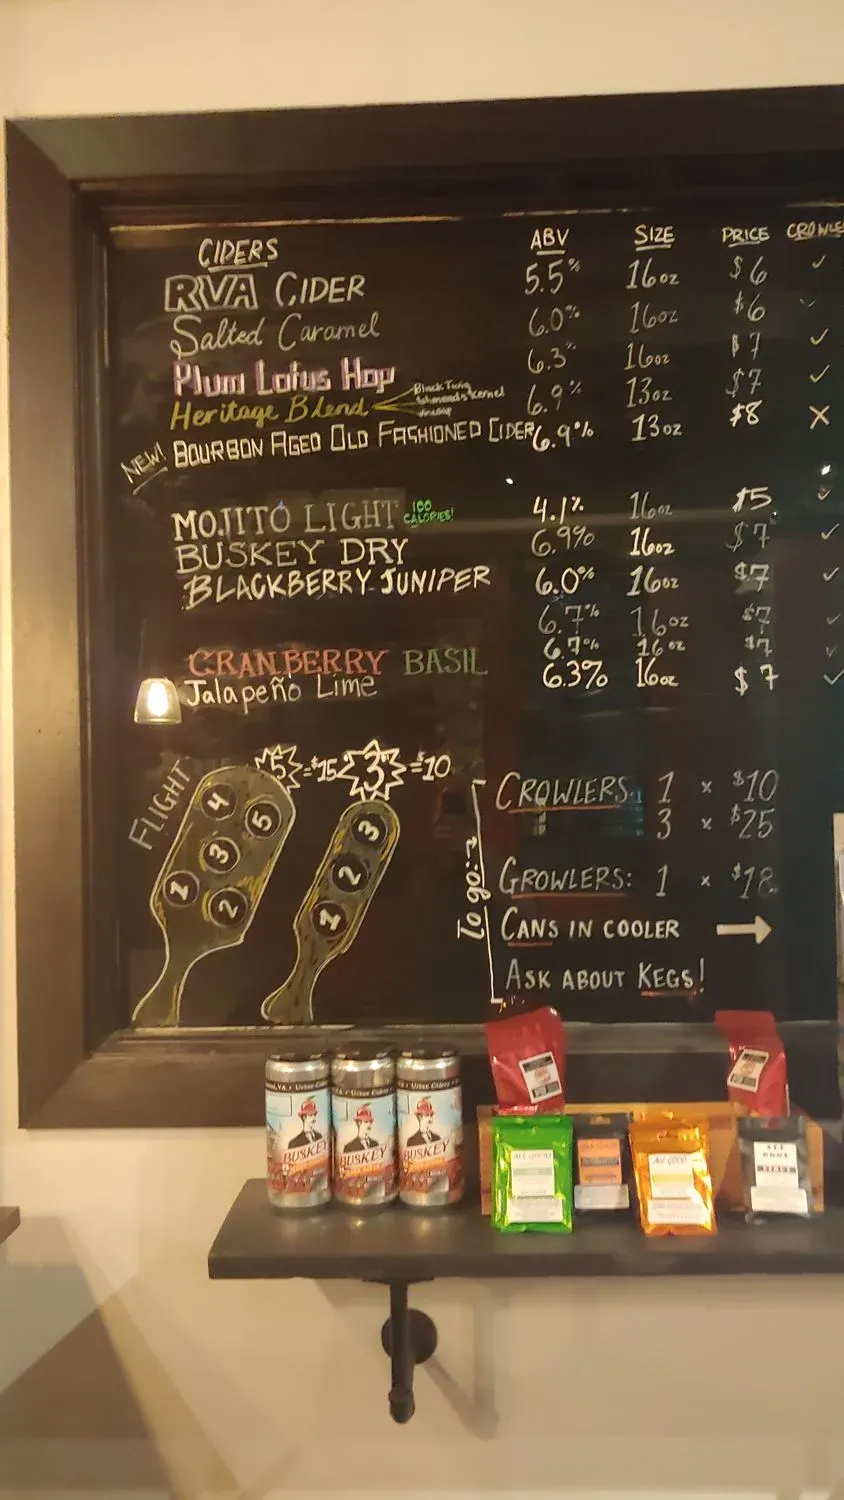 CIDERS ABV SIZE PRICE CROWLE
RVA CIDER 5.5% 16oz $6 ✓
Salted Caramel 6.0% 16oz $6 ✓
Plum Lotus Hop 6.3% 16oz $7 ✓
Heritage Blend Black Twig Ashmead's Kernel Winesap 6.9% 13oz $7 ✓
NEW! BOURBON AGED OLD FASHIONED CIDER 6.9% 13oz $8 X
MOJITO LIGHT 100 CALORIES! 4.1% 16oz $5 ✓
BUSKEY DRY 6.9% 16oz $7 ✓
BLACKBERRY JUNIPER 6.0% 16oz $7 ✓
6.7% 16oz $7 ✓
CRANBERRY BASIL 6.7% 16oz $7 ✓
Jalapeño Lime 6.3% 16oz $7 ✓
FLIGHT
5 = $15
3 = $10
4
5
3
1
2
3
2
1
To go:
CROWLERS: 1 x $10
3 x $25
GROWLERS: 1 x $18
CANS IN COOLER →
ASK ABOUT KEGS!
Urban Cidery
BUSKEY
BUSKEY
BUSKEY
ALL GOOD
ALL GOOD